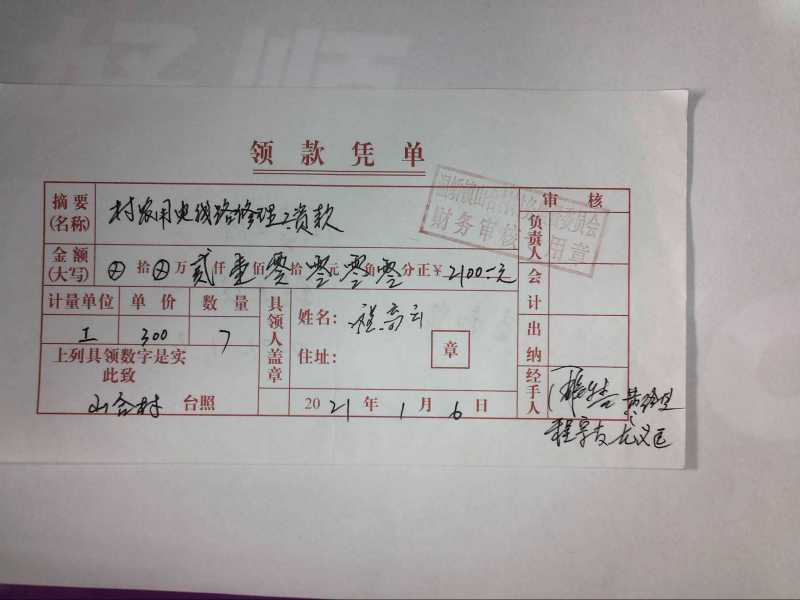 领款凭单
摘要(名称) 村农用电线路修理工资款 审核
财务审核 用章
负责人
金额(大写) ⊗拾⊗万贰仟壹佰零拾零元零角零分正￥2100.00元
会计
计量单位 单价 数量 具领人盖章 姓名: 程
工 300 7 住址: 章
出纳
上列具领数字是实
此致
山合村 台照 2021年1月6日
经手人
程